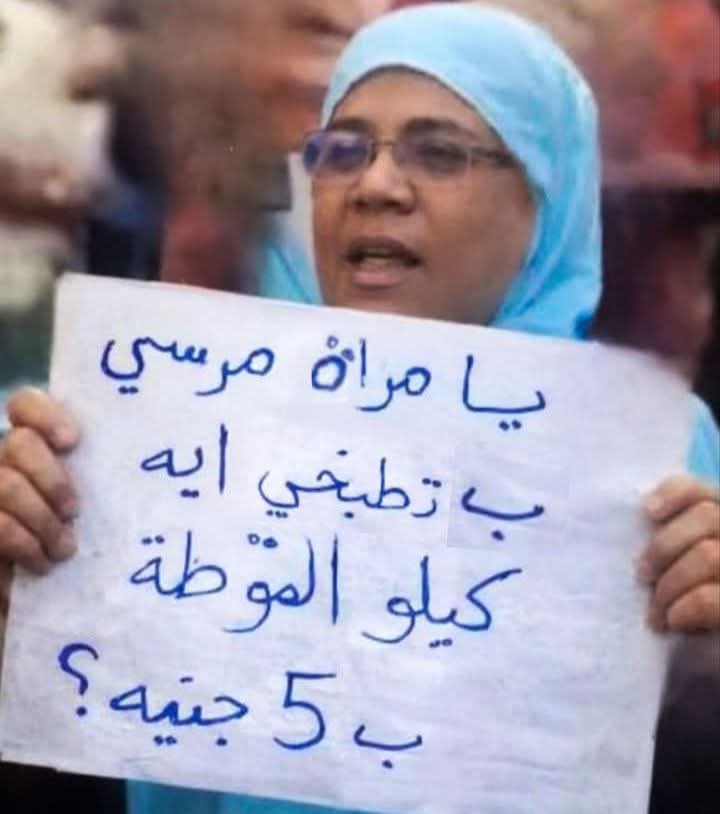 يا مراة مرسي
ب تطبخي ايه
كيلو القوّطة
ب 5 جنيه ؟